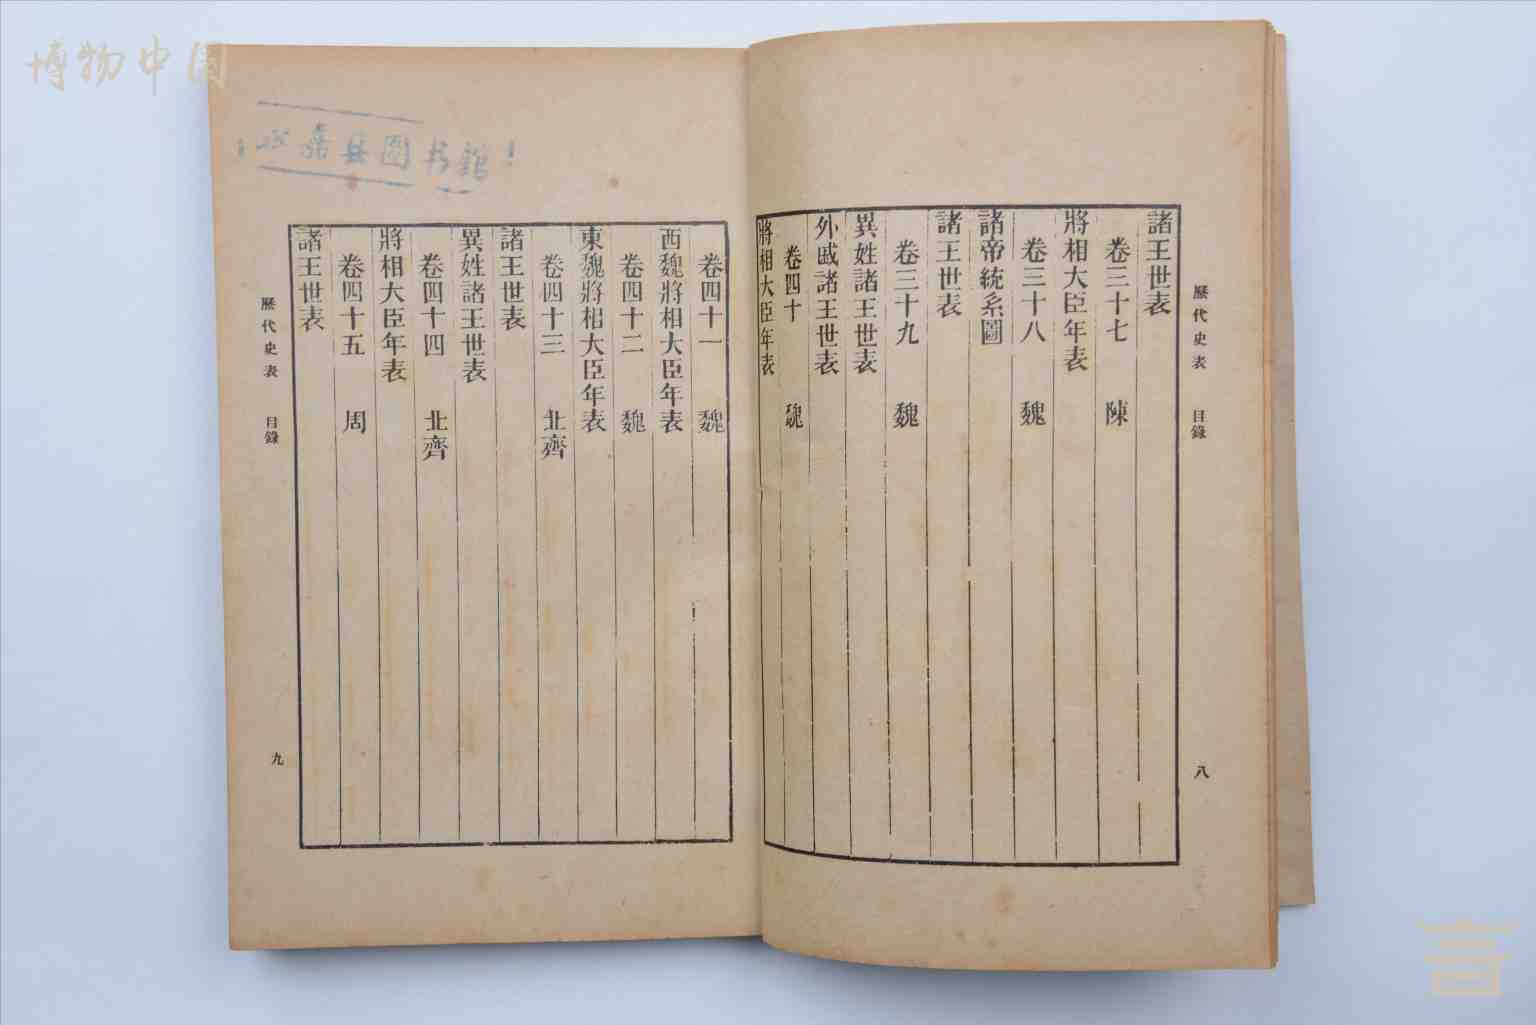 博物中国
歷代史表 目錄
八
諸王世表
卷三十七 陳
將相大臣年表
卷三十八 魏
諸帝統系圖
諸王世表
卷三十九 魏
異姓諸王世表
外戚諸王世表
卷四十 魏
將相大臣年表
卷四十一 魏
西魏將相大臣年表
卷四十二 魏
東魏將相大臣年表
卷四十三 北齊
諸王世表
異姓諸王世表
卷四十四 北齊
將相大臣年表
卷四十五 周
諸王世表
歷代史表 目錄
九
嘉县圖书館